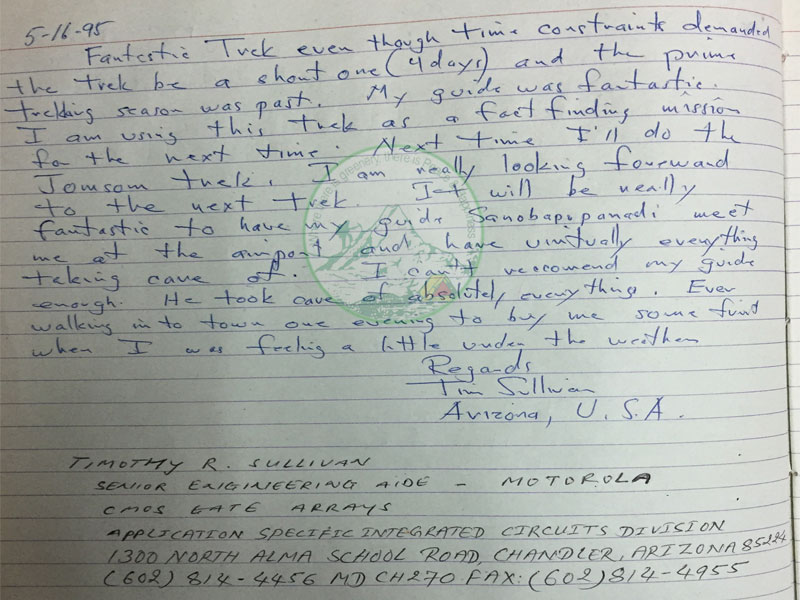 5-16-95
Fantastic Trek even though time constraints demanded
the trek be a short one (4 days) and the prime
trekking season was past. My guide was fantastic.
I am using this trek as a fact finding mission
for the next time. Next time I'll do the
Jomsom trek. I am really looking foreward
to the next trek. It will be really
fantastic to have my guide meet
me at the airport and have virtually everything
taking care of. I can't reccomend my guide
enough. He took care of absolutely everything. Ever
walking in to town one evening to buy me some fruit
when I was feeling a little under the weather
Regards
Tim Sullivan
Arizona, U.S.A.
TIMOTHY R. SULLIVAN
SENIOR ENGINEERING AIDE - MOTOROLA
CMOS GATE ARRAYS
APPLICATION SPECIFIC INTEGRATED CIRCUITS DIVISION
1300 NORTH ALMA SCHOOL ROAD, CHANDLER, ARIZONA 85224
(602) 814-4456 MD CH270 FAX: (602) 814-4955